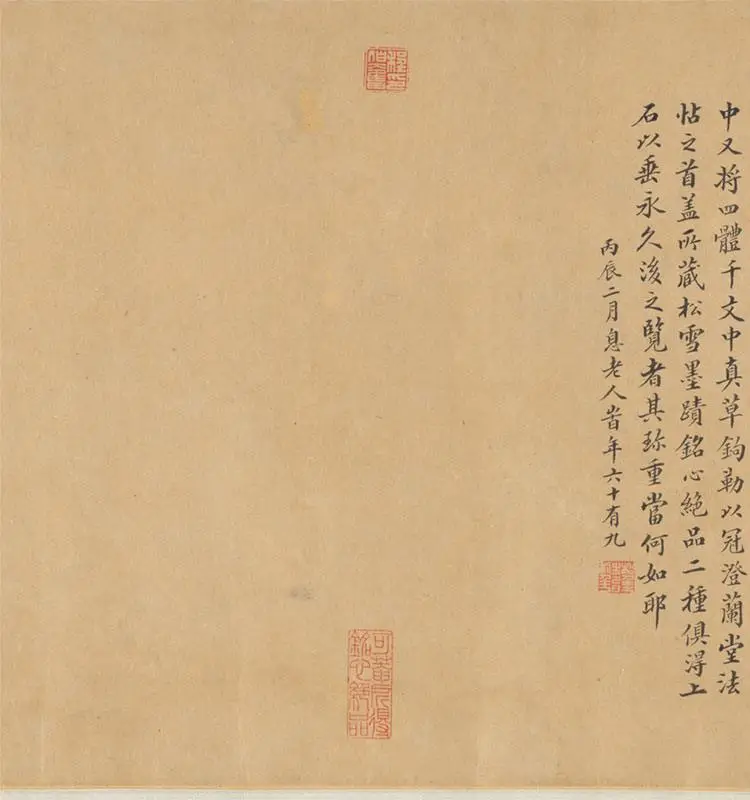 中又將四體千文中真草鉤勒以冠澄蘭堂法
帖之首盖所蔵松雪墨蹟銘心絶品二種俱淂上
石以垂永久後之覽者其珎重當何如耶
丙辰二月息老人峕年六十有九
銘心絶品